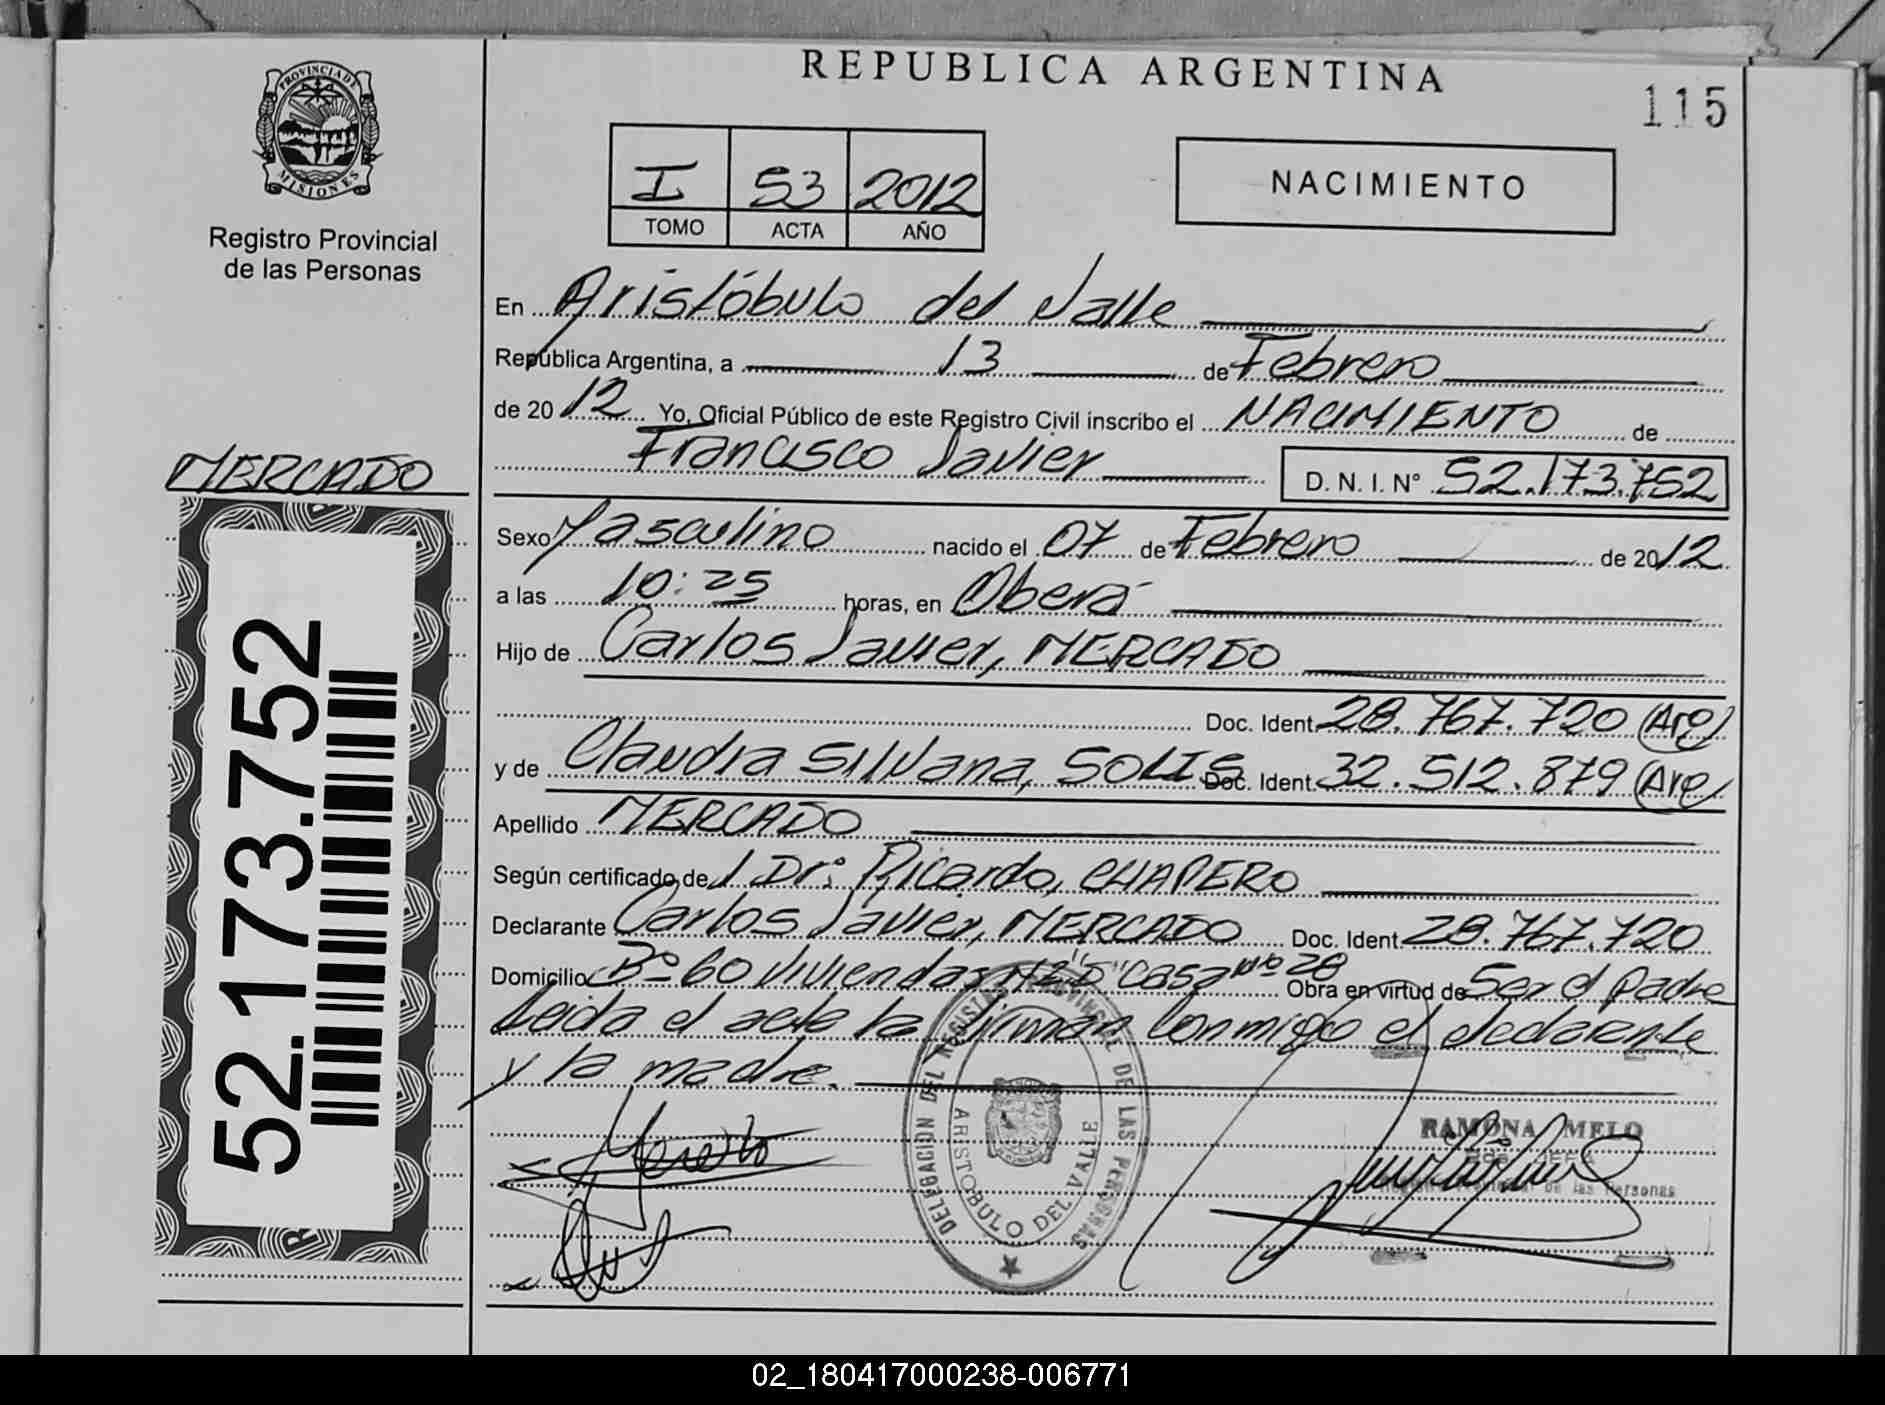 REPUBLICA ARGENTINA
115
PROVINCIA DE
MISIONES
Registro Provincial
de las Personas
I 53 2012
TOMO ACTA AÑO
NACIMIENTO
En Aristóbulo del Valle
República Argentina, a 13 de Febrero
de 2012 Yo, Oficial Público de este Registro Civil inscribo el NACIMIENTO de
Francisco Javier D. N. I. N° 52.173.752
MERCADO
52.173.752
Sexo Masculino nacido el 07 de Febrero de 2012
a las 10:25 horas, en Oberá
Hijo de Carlos Javier, MERCADO
Doc. Ident. 28.767.720 (Arg)
y de Claudia Silvana, SOLIS Doc. Ident. 32.512.879 (Arg)
Apellido MERCADO
Según certificado de / Dr: Ricardo, CHAPERO
Declarante Carlos Javier, MERCADO Doc. Ident. 28.767.720
Domicilio B° 60 Viviendas Mz "D" Casa N° 28 Obra en virtud de Ser el padre
Leida el acta la firman conmigo el declarante
y la madre.
DELEGACION DEL REGISTRO PROVINCIAL DE LAS PERSONAS
ARISTOBULO DEL VALLE
RAMONA MELO
JEFA
de las Personas
02_180417000238-006771